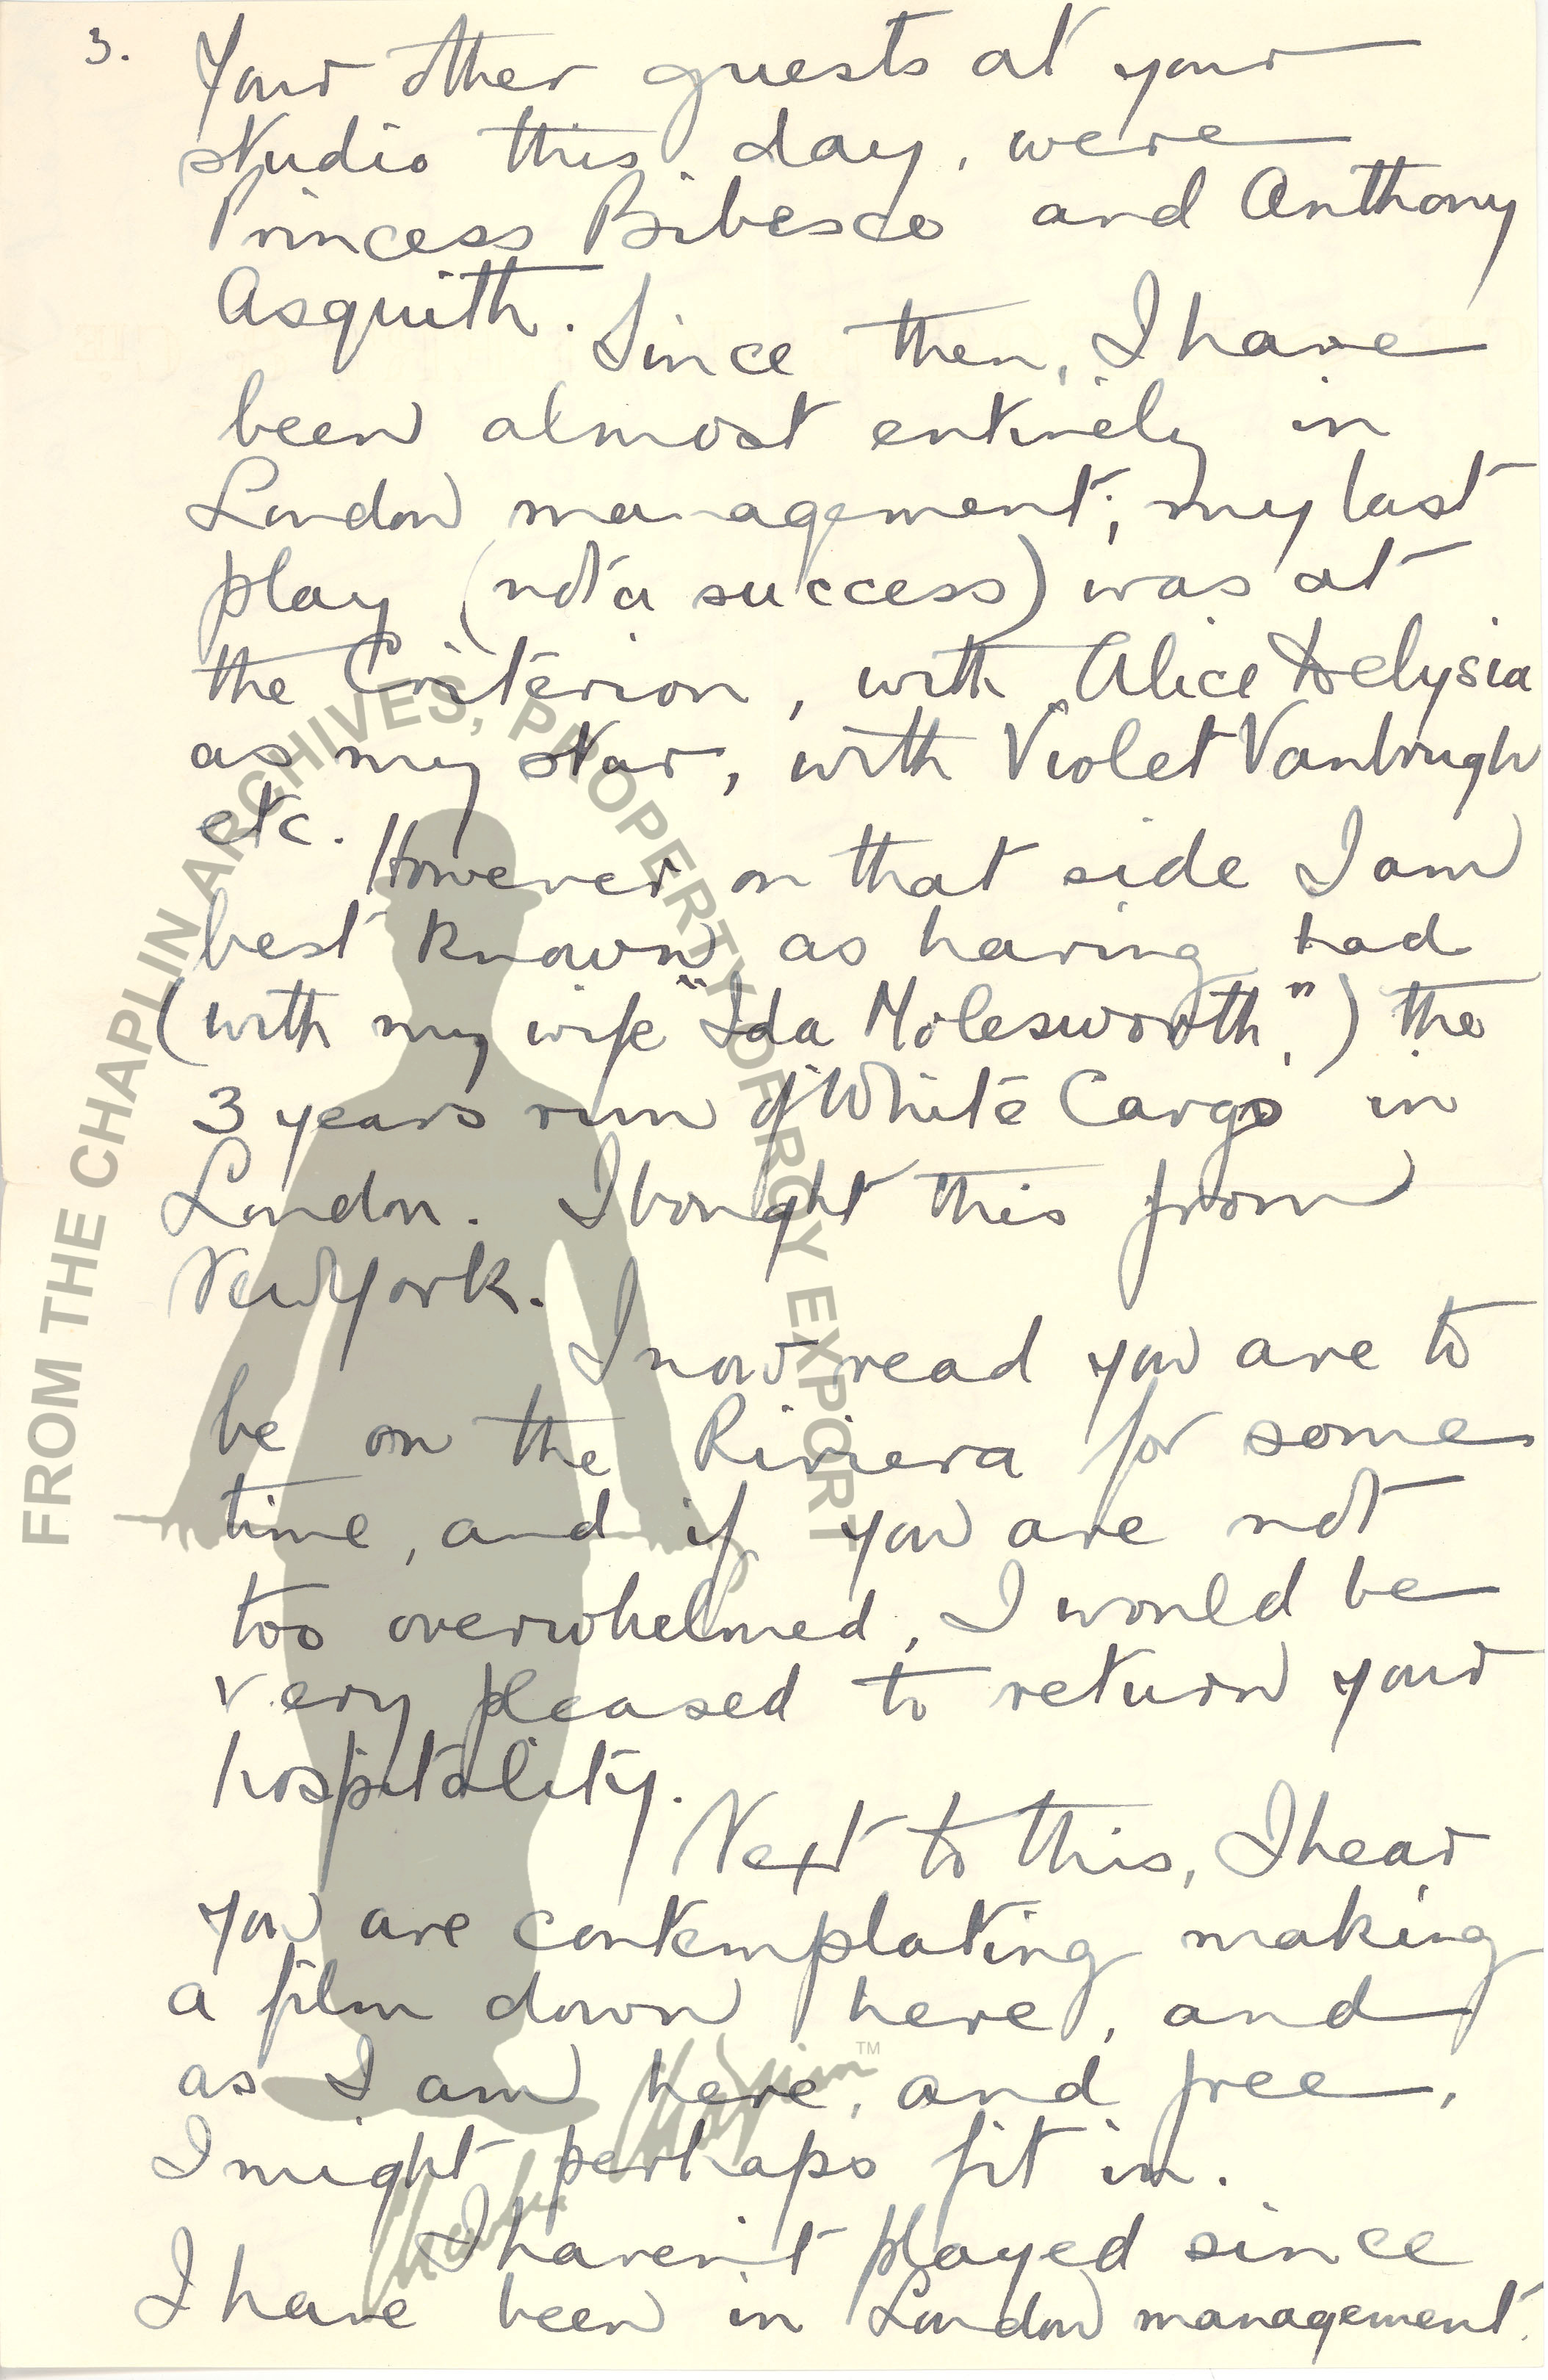 3. Your other guests at your
studio this day, were
Princess Bibesco and Anthony
Asquith.
Since then, I have
been almost entirely in
London management; my last
play (not a success) was at
the Criterion, with Alice Delysia
as my star, with Violet Vanbrugh
etc.
However on that side I am
best known as having had
(with my wife "Ida Molesworth",) the
3 years run of "White Cargo in
London. I bought this from
New York.
I now read you are to
be on the Riviera for some
time, and if you are not
too overwhelmed, I would be
very pleased to return your
hospitality.
Next to this, I hear
you are contemplating making
a film down here, and
as I am here, and free,
I might perhaps fit in.
I haven't played since
I have been in London management.
FROM THE CHAPLIN ARCHIVES, PROPERTY OF ROY EXPORT
Charles Chaplin™